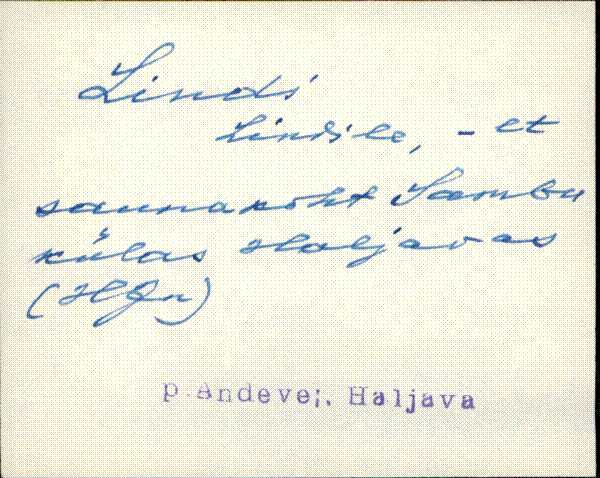 Lindi
Lindile, - et
saunakoht Sambu
külas Haljavas
(HJn)
P. Andeve;. Haljava